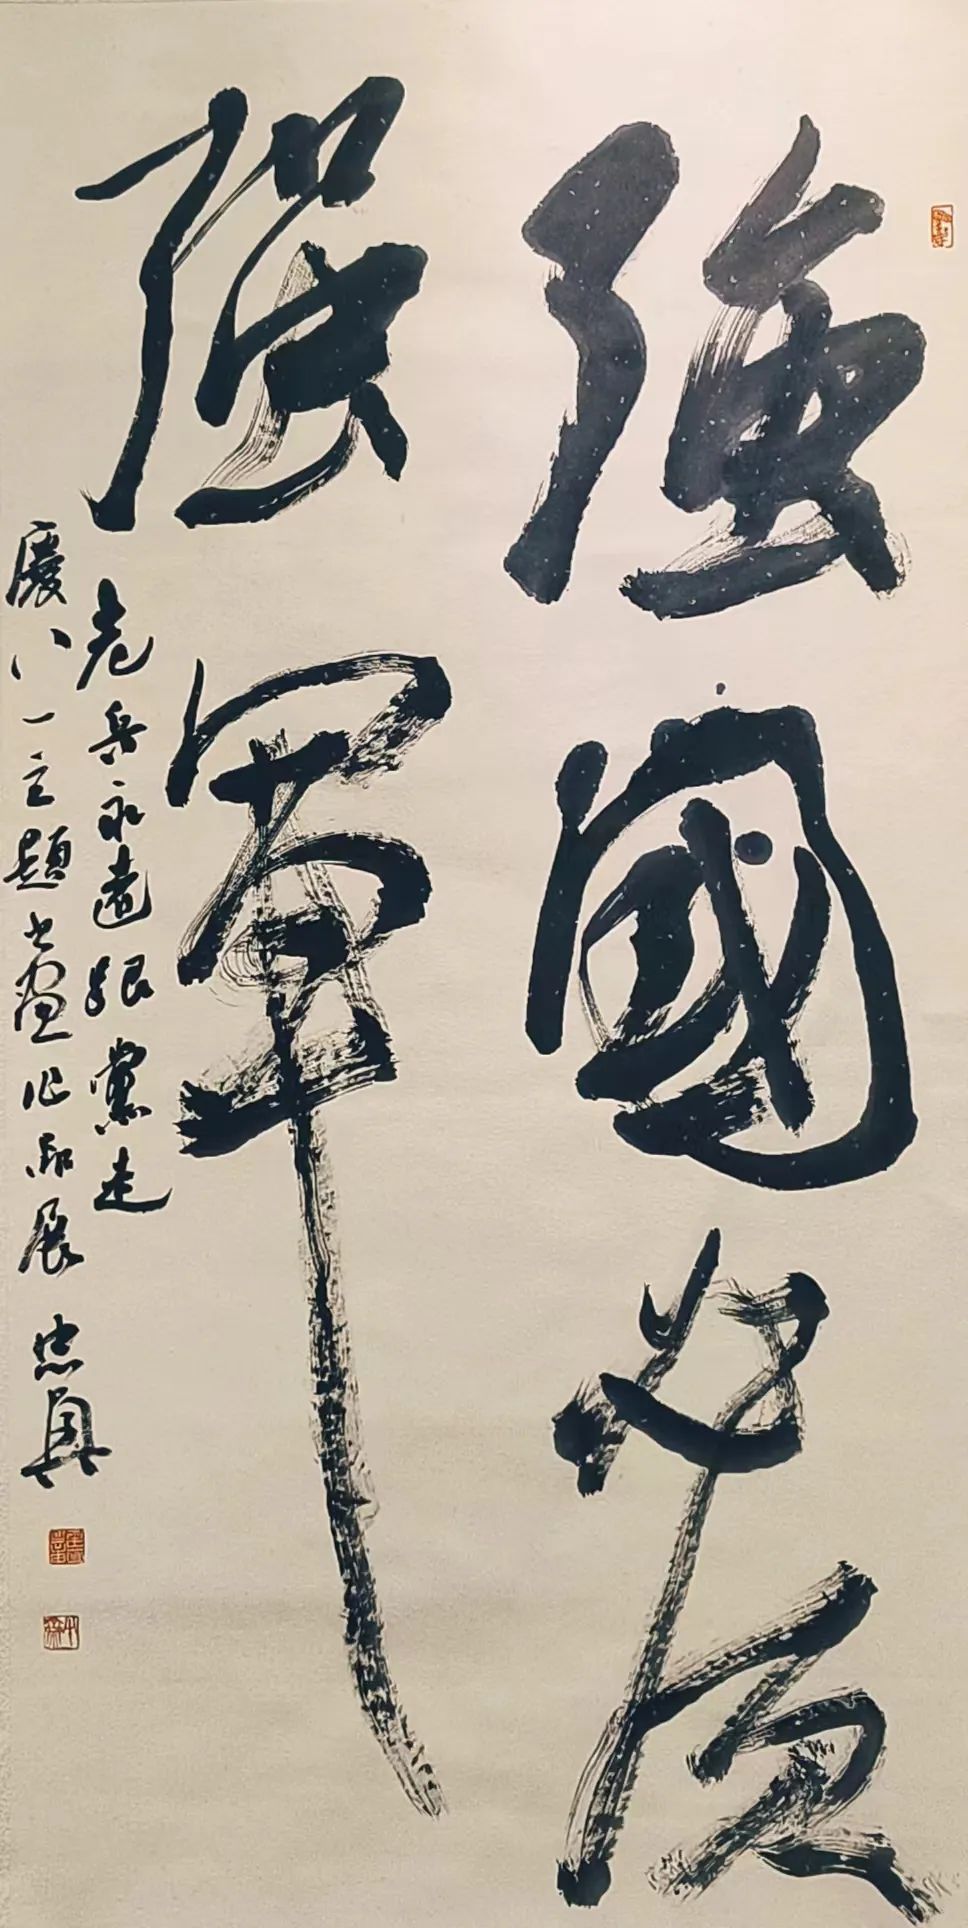 強國必須
强軍
老兵永遠跟黨走
慶八一主題書畫作品展 忠真